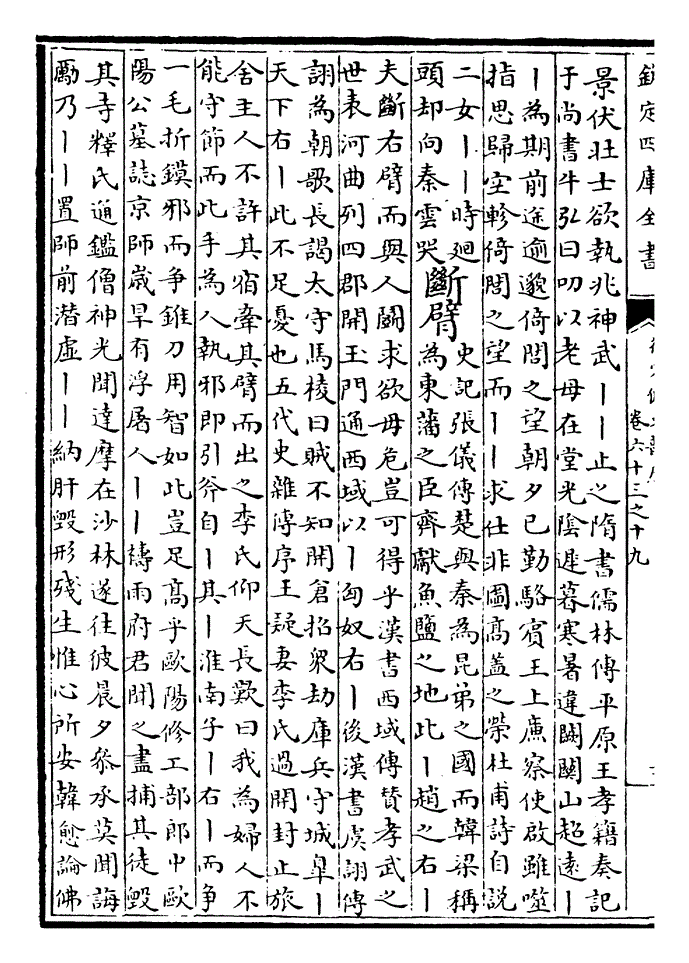 欽定四庫全書
卷六十三之十九
景伏壯士欲執兆神武丨丨止之隋書儒林傳平原王孝籍奏記
于尚書牛弘曰叨以老母在堂光陰遲暮寒暑違闕關山超遠丨
丨為期前途逾邈倚閭之望朝夕已勤駱賓王上亷察使啟雖噬
指思歸空軫倚閭之望而丨丨求仕非圖高盖之榮杜甫詩自說
二女丨丨時廻
頭却向秦雲哭
斷臂
史記張儀傳楚與秦為昆弟之國而韓梁稱
為東藩之臣齊獻魚鹽之地此丨趙之右丨
夫斷右臂而與人鬭求欲毋危豈可得乎漢書西域傳贊孝武之
世表河曲列四郡開玉門通西域以丨匈奴右丨後漢書虞詡傳
詡為朝歌長謁太守馬棱曰賊不知開倉招衆劫庫兵守城臯丨
天下右丨此不足憂也五代史雜傳序王凝妻李氏過開封止旅
舍主人不許其宿牽其臂而出之李氏仰天長歎曰我為婦人不
能守節而此手為人執邪即引斧自丨其丨淮南子丨右丨而爭
一毛折鏌邪而爭錐刀用智如此豈足髙乎歐陽修工部郎中歐
陽公墓誌京師嵗旱有浮屠人丨丨禱雨府君聞之盡捕其徒毀
其寺釋氏通鑑僧神光聞達摩在沙林遂往彼晨夕叅承莫聞誨
勵乃丨丨置師前潛虛丨丨納肝毀形殘生惟心所安韓愈論佛